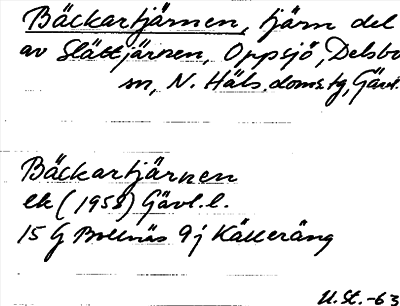 Bäckartjärnen, tjärn del
av Slättjärnen, Oppsjö, Delsbo
sn, N. Häls. doms.tg, Gävl.
Bäckartjärnen
ek (1958) Gävl. l.
15 G Bollnäs 9j Källeräng
U.St.-63